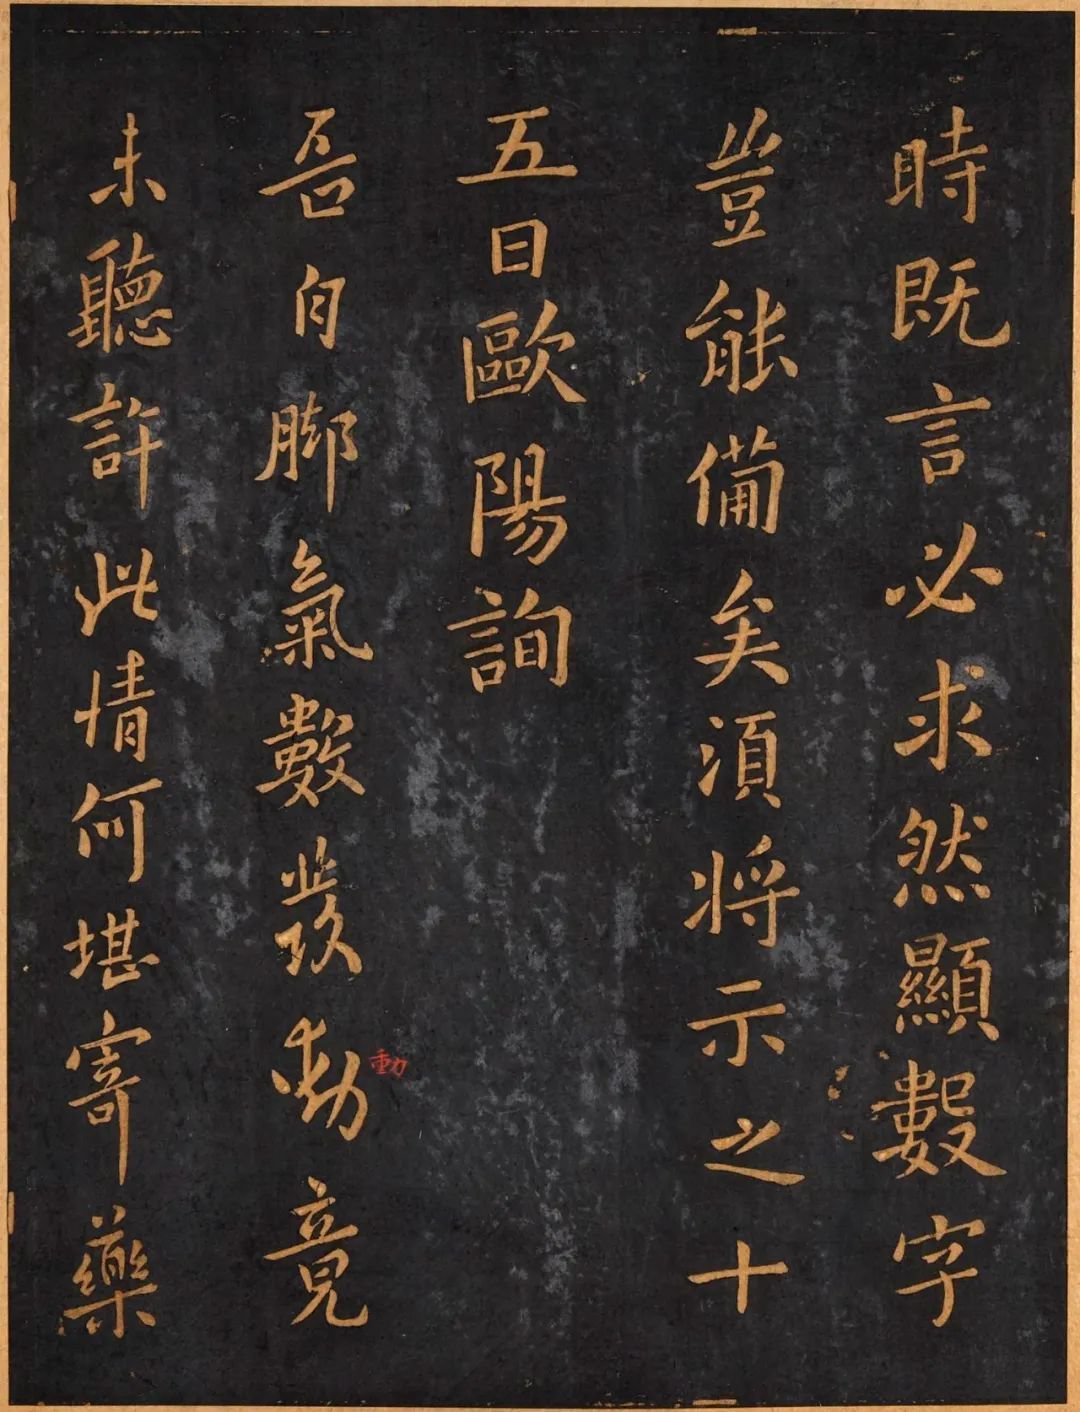 時既言必求然顯數字
豈能備矣須將示之十
五日歐陽詢
吾自脚氣數發動竟
動
未聽許此情何堪寄藥